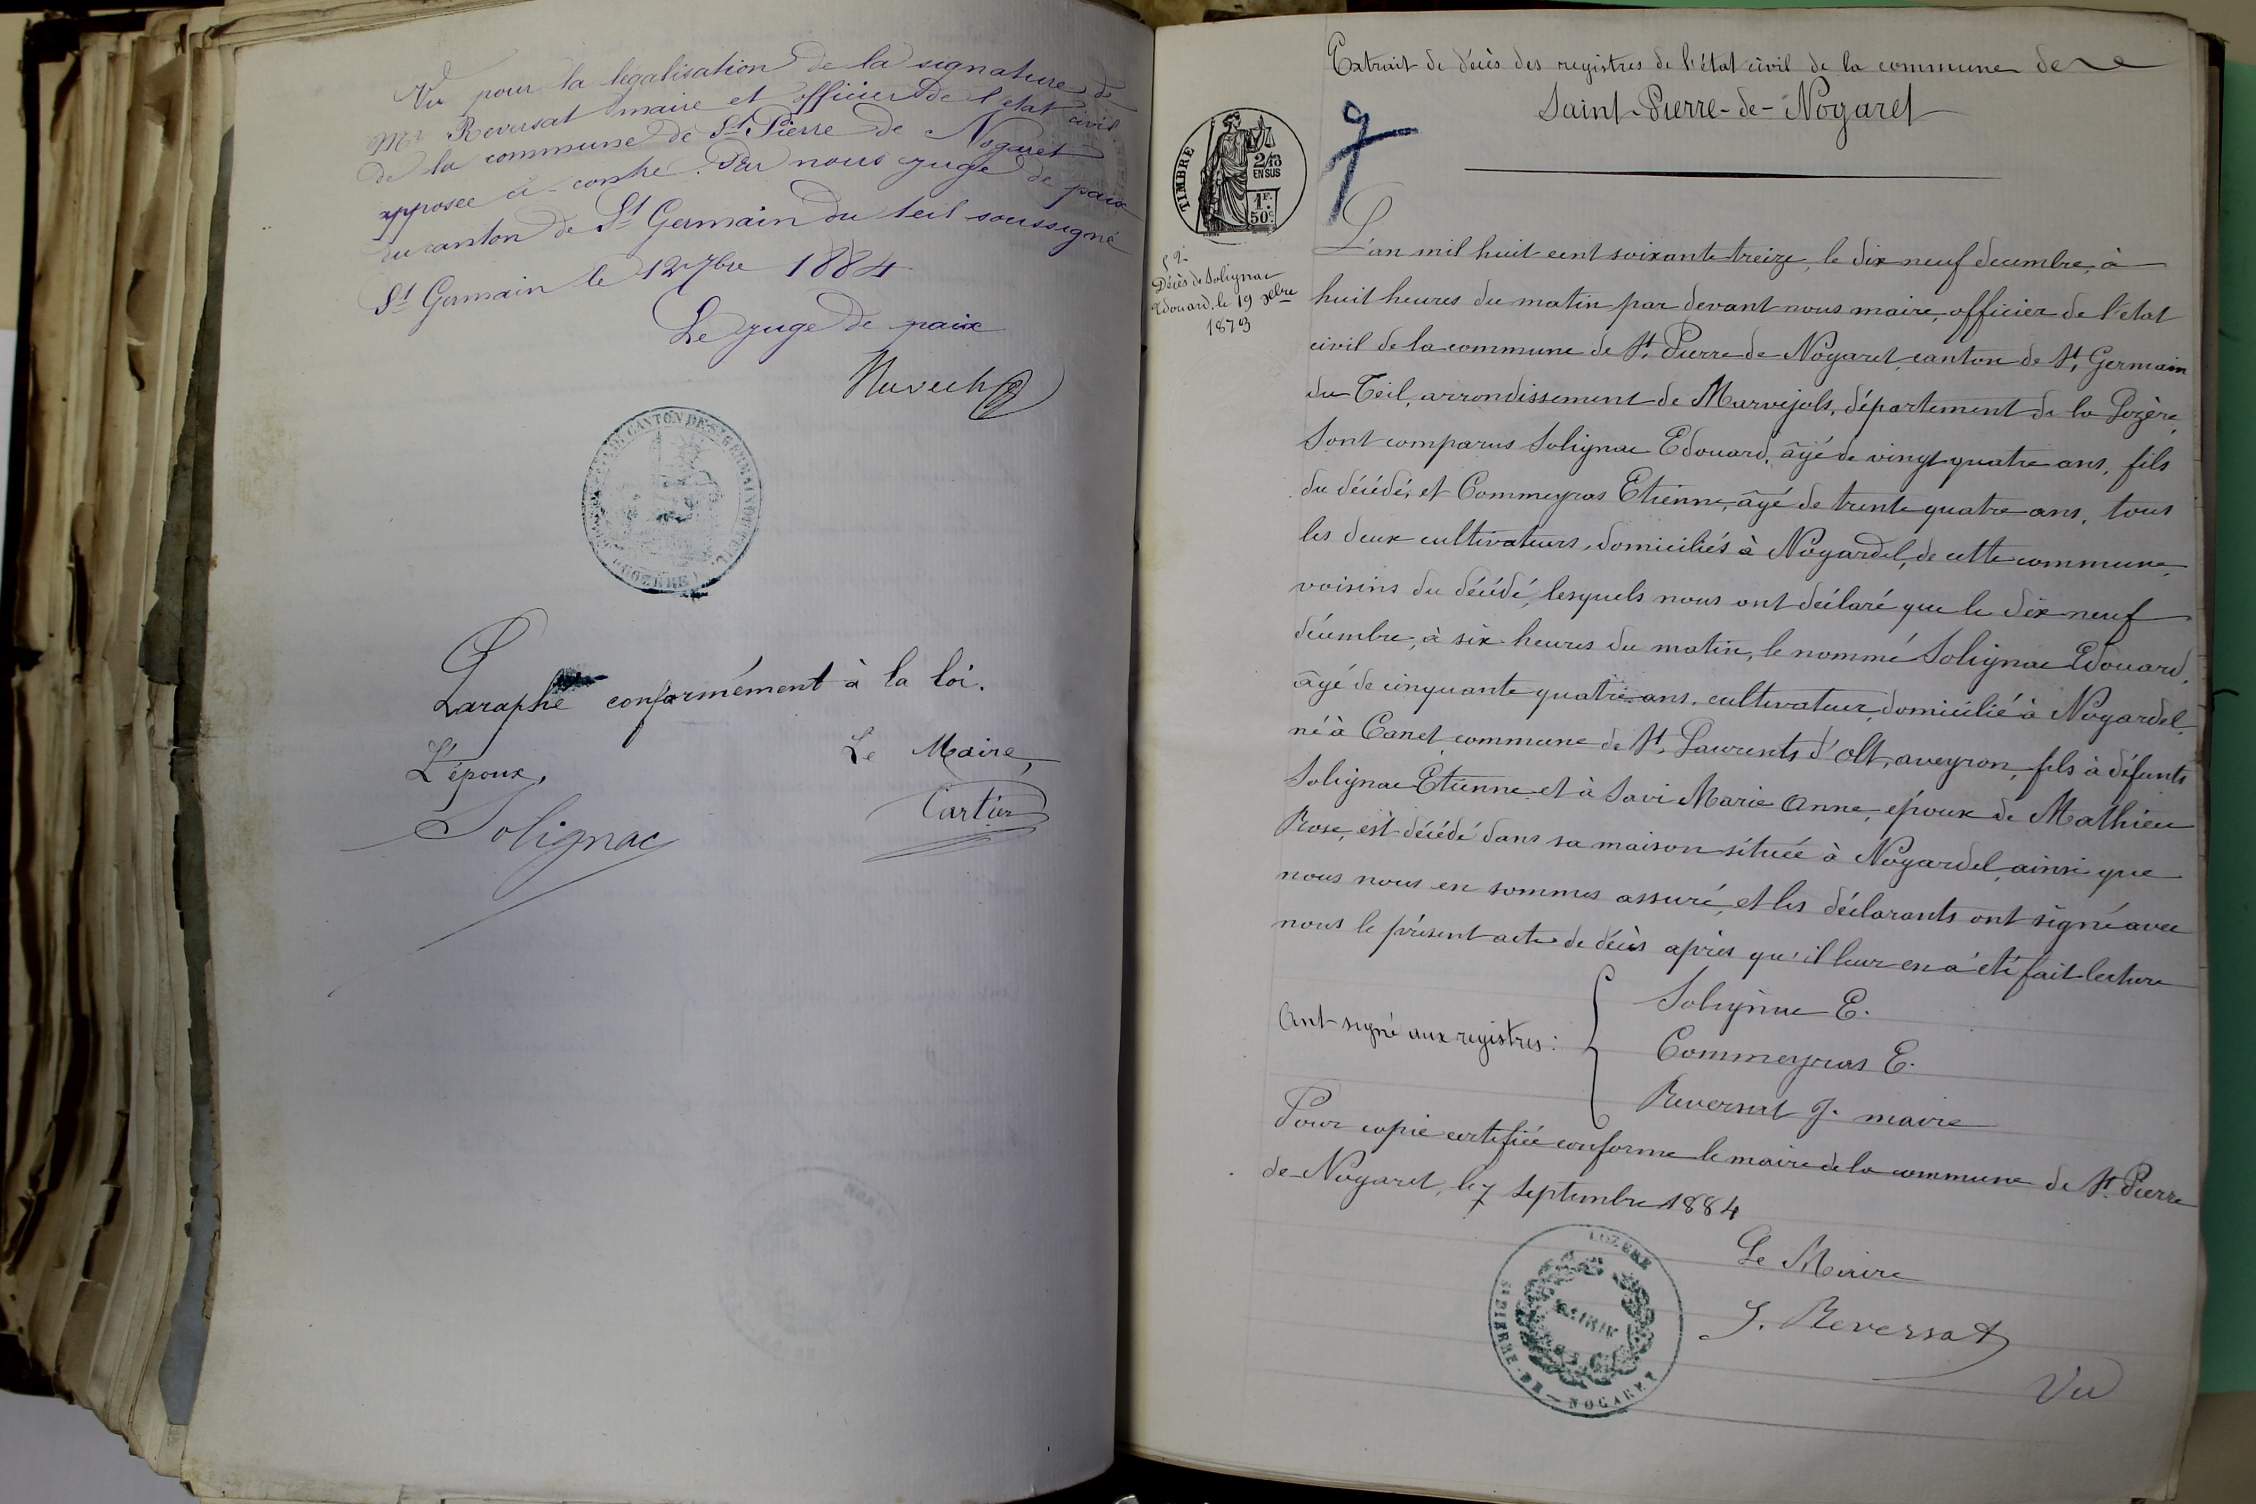 Vu pour la legalisation de la signature de
Mr Reversat maire et officier de l'etat civil
de la commune de St Pierre de Nogaret
apposée ci-contre. Par nous juge de paix
du canton de St Germain du teil soussigné
St Germain le 12 7bre 1884
Le juge de paix
Paraphé conformément à la loi.
L'époux,
Le Maire,
Solignac
Cartier
Extrait de décès des registres de l'état civil de la commune de
Saint-Pierre-de-Nogaret
TIMBRE
2/10
EN SUS
1F.
50c.
Décès de Solignac
Edouard, le 19 Xbre
1873
L'an mil huit cent soixante treize, le dix neuf decembre, à
huit heures du matin par devant nous maire, officier de l'état
civil de la commune de St Pierre de Nogaret, canton de St Germain
du Teil, arrondissement de Marvejols, département de la Lozère,
Sont comparus Solignac Edouard, âgé de vingt quatre ans, fils
du décédé, et Commeyras Etienne, âgé de trente quatre ans, tous
les deux cultivateurs, domiciliés à Nogardel, de cette commune,
voisins du décédé, lesquels nous ont déclaré que le dix neuf
décembre, à six heures du matin, le nommé Solignac Edouard,
âgé de cinquante quatre ans, cultivateur, domicilié à Nogardel,
né à Canet commune de St Laurents d'olt, aveyron, fils à défunts
Solignac Etienne et à Savi Marie Anne, époux de Mathieu
Rose, est décédé dans sa maison située à Nogardel, ainsi que
nous nous en sommes assuré, et les déclarants ont signé avec
nous le présent acte de décès après qu'il leur en a été fait lecture
Ont signé aux registres :
Solignac E.
Commeyras E.
Reversat J. maire
Pour copie certifiée conforme le maire de la commune de St Pierre
de Nogaret, le 7 Septembre 1884
Le Maire
J. Reversat
LOZÈRE
MAIRIE
ST PIERRE-DE-NOGARET
Vu